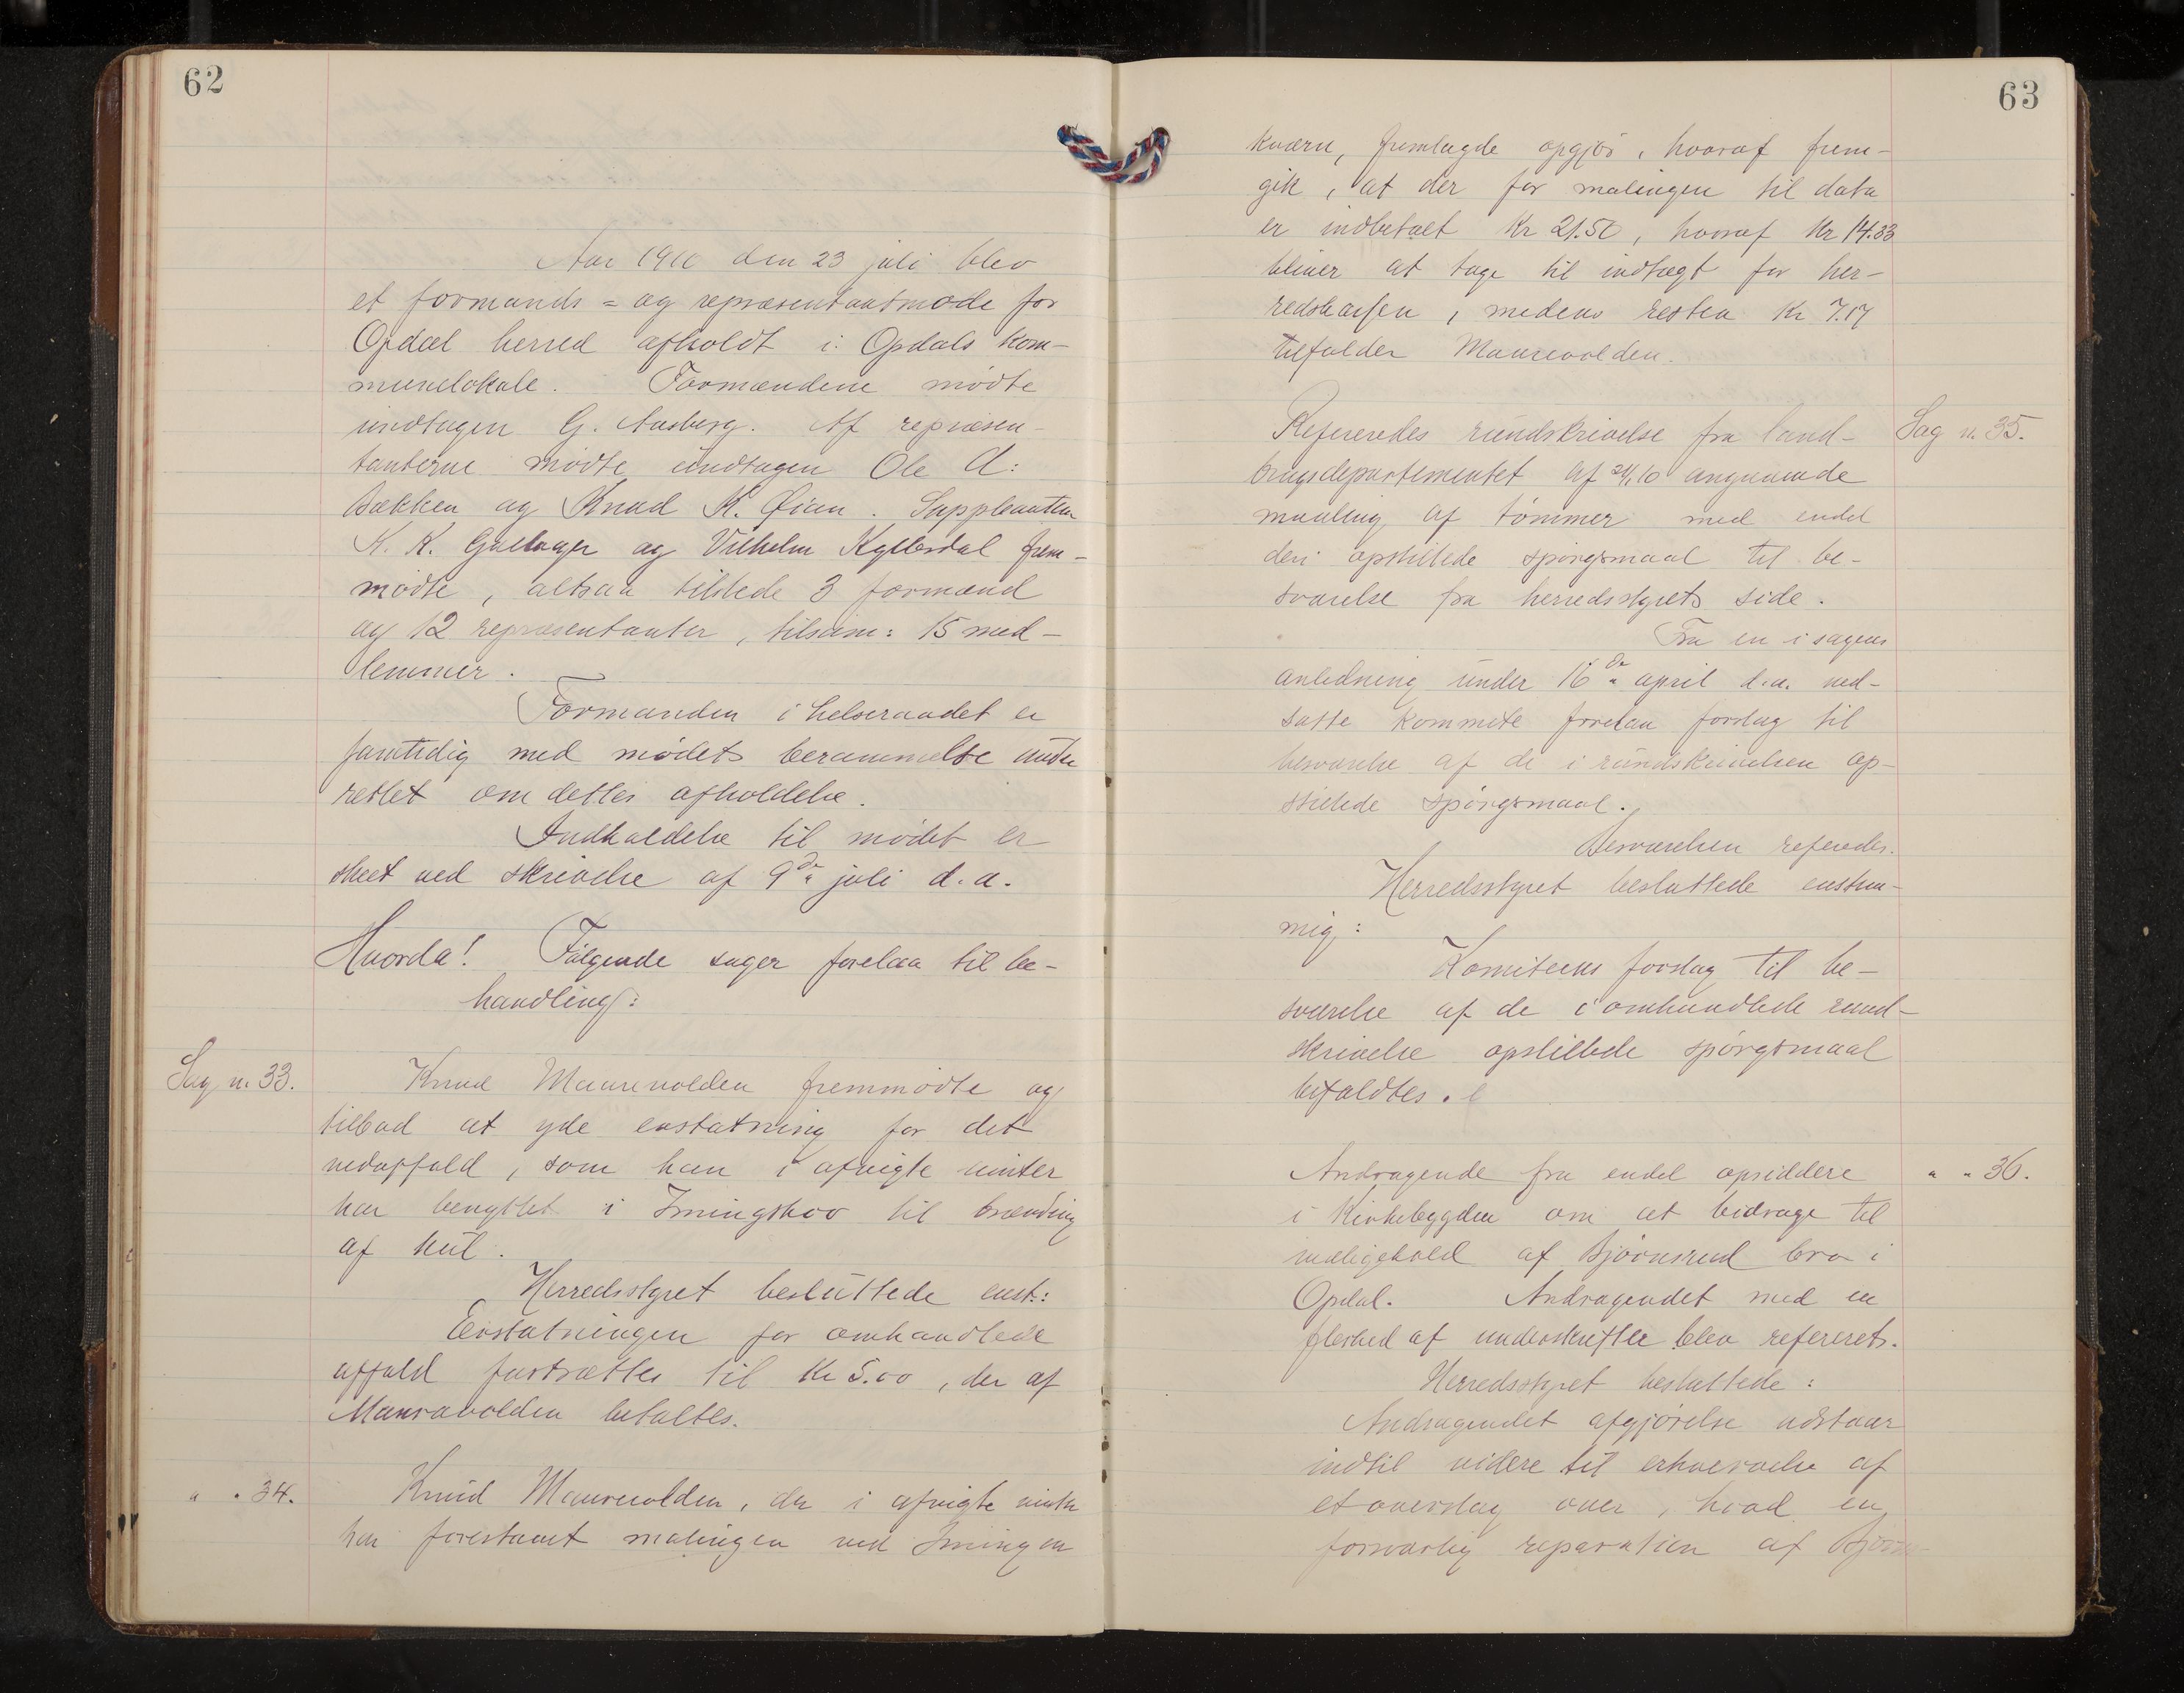 62
Aar 1910 den 23 juli blev
et formands = og repræsentantmøde for
Opdal herred afholdt i Opdals kom-
munelokale. Formændene mødte
undtagen G. Aasberg. Af repræsen-
tanterne mødte undtagen Ole A:
Bakken og Knud K. Øien. Suppleanten
K. K. og Vilhelm frem-
mødte, altsaa tilstede 3 formænd
og 12 repræsentanter, tilsam: 15 med-
lemmer.
Formanden i helseraadet er
samtidig med mødets berammelse under
rettet om dettes afholdelse.
Indkaldelse til mødet er
skeet ved skrivelse af 9de juli d. a.
Hvorda! Følgende sager forelaa til be-
handling:
Sag n. 33.
Knud Maurevolden fremmødte og
tilbød at yde erstatning for det
vedaffald, som han i afvigte vinter
har benyttet i Imingskov til brænding
af kul.
Herredsstyret besluttede enst.:
Erstatningen for omhandlede
affald fastsættes til Kr 5.00, der af
Mauravolden betaltes.
" " 34.
Knud Maurevolden, der i afvigte vinter
har forestaaet malingen ved Imingen
63
kværn, fremlagde opgjør, hvoraf frem-
gik, at der for malingen til data
er indbetalt Kr 21.50, hvoraf Kr 14.33
bliver at tage til indtægt for her-
redskassen, medens resten Kr 7.17
tilfalder Maurevolden.
Sag n. 35.
Refereredes rundskrivelse fra land-
brugsdepartementet af angaaende
maaling af tømmer med endel
deri opstillede spørgsmaal til be-
svarelse fra herredsstyrets side.
Fra en i sagens
anledning under 16de april d.a. ned-
satte kommite forelaa forslag til
besvarelse af de i rundskrivelsen op-
stillede spørgsmaal.
Besvarelsen referedes.
Herredsstyret besluttede enstem-
mig:
Komiteens forslag til be-
svarelse af de i omhandlede rund-
skrivelse opstillede spørgsmaal
bifaldtes.
" " 36.
Andragende fra endel opsiddere
i Kirkebygden om at bidrage til
vedligehold af Bjørnsrud bro i
Opdal. Andragendet med en
flerhed af underskrifter blev refereret.
Herredsstyret besluttede:
Andragendet afgjørelse udstaar
indtil videre til erhvervelse af
et overslag over, hvad en
forsvarlig reparation af Bjørn-